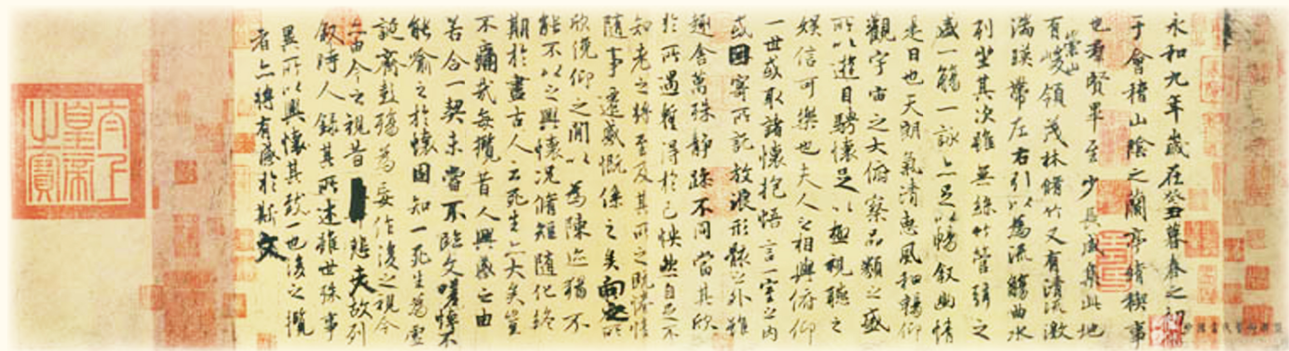 永和九年歲在癸丑暮春之初會
于會稽山陰之蘭亭脩稧事
也羣賢畢至少長咸集此地
有崇山峻領茂林脩竹又有清流激
湍暎帶左右引以為流觴曲水
列坐其次雖無絲竹管弦之
盛一觴一詠亦足以暢叙幽情
是日也天朗氣清惠風和暢仰
觀宇宙之大俯察品類之盛
所以遊目騁懷足以極視聽之
娛信可樂也夫人之相與俯仰
一世或取諸懷抱悟言一室之內
或因寄所託放浪形骸之外雖
趣舍萬殊靜躁不同當其欣
於所遇蹔得於己怏然自足不
知老之將至及其所之既惓情
隨事遷感慨係之矣向之所
欣俛仰之閒以為陳迹猶不
能不以之興懷況脩短隨化終
期於盡古人云死生亦大矣豈
不痛哉每攬昔人興感之由
若合一契未嘗不臨文嗟悼不
能喻之於懷固知一死生為虛
誕齊彭殤為妄作後之視今
亦由今之視昔悲夫故列
叙時人錄其所述雖世殊事
異所以興懷其致一也後之攬
者亦將有感於斯文
太上皇帝之寶